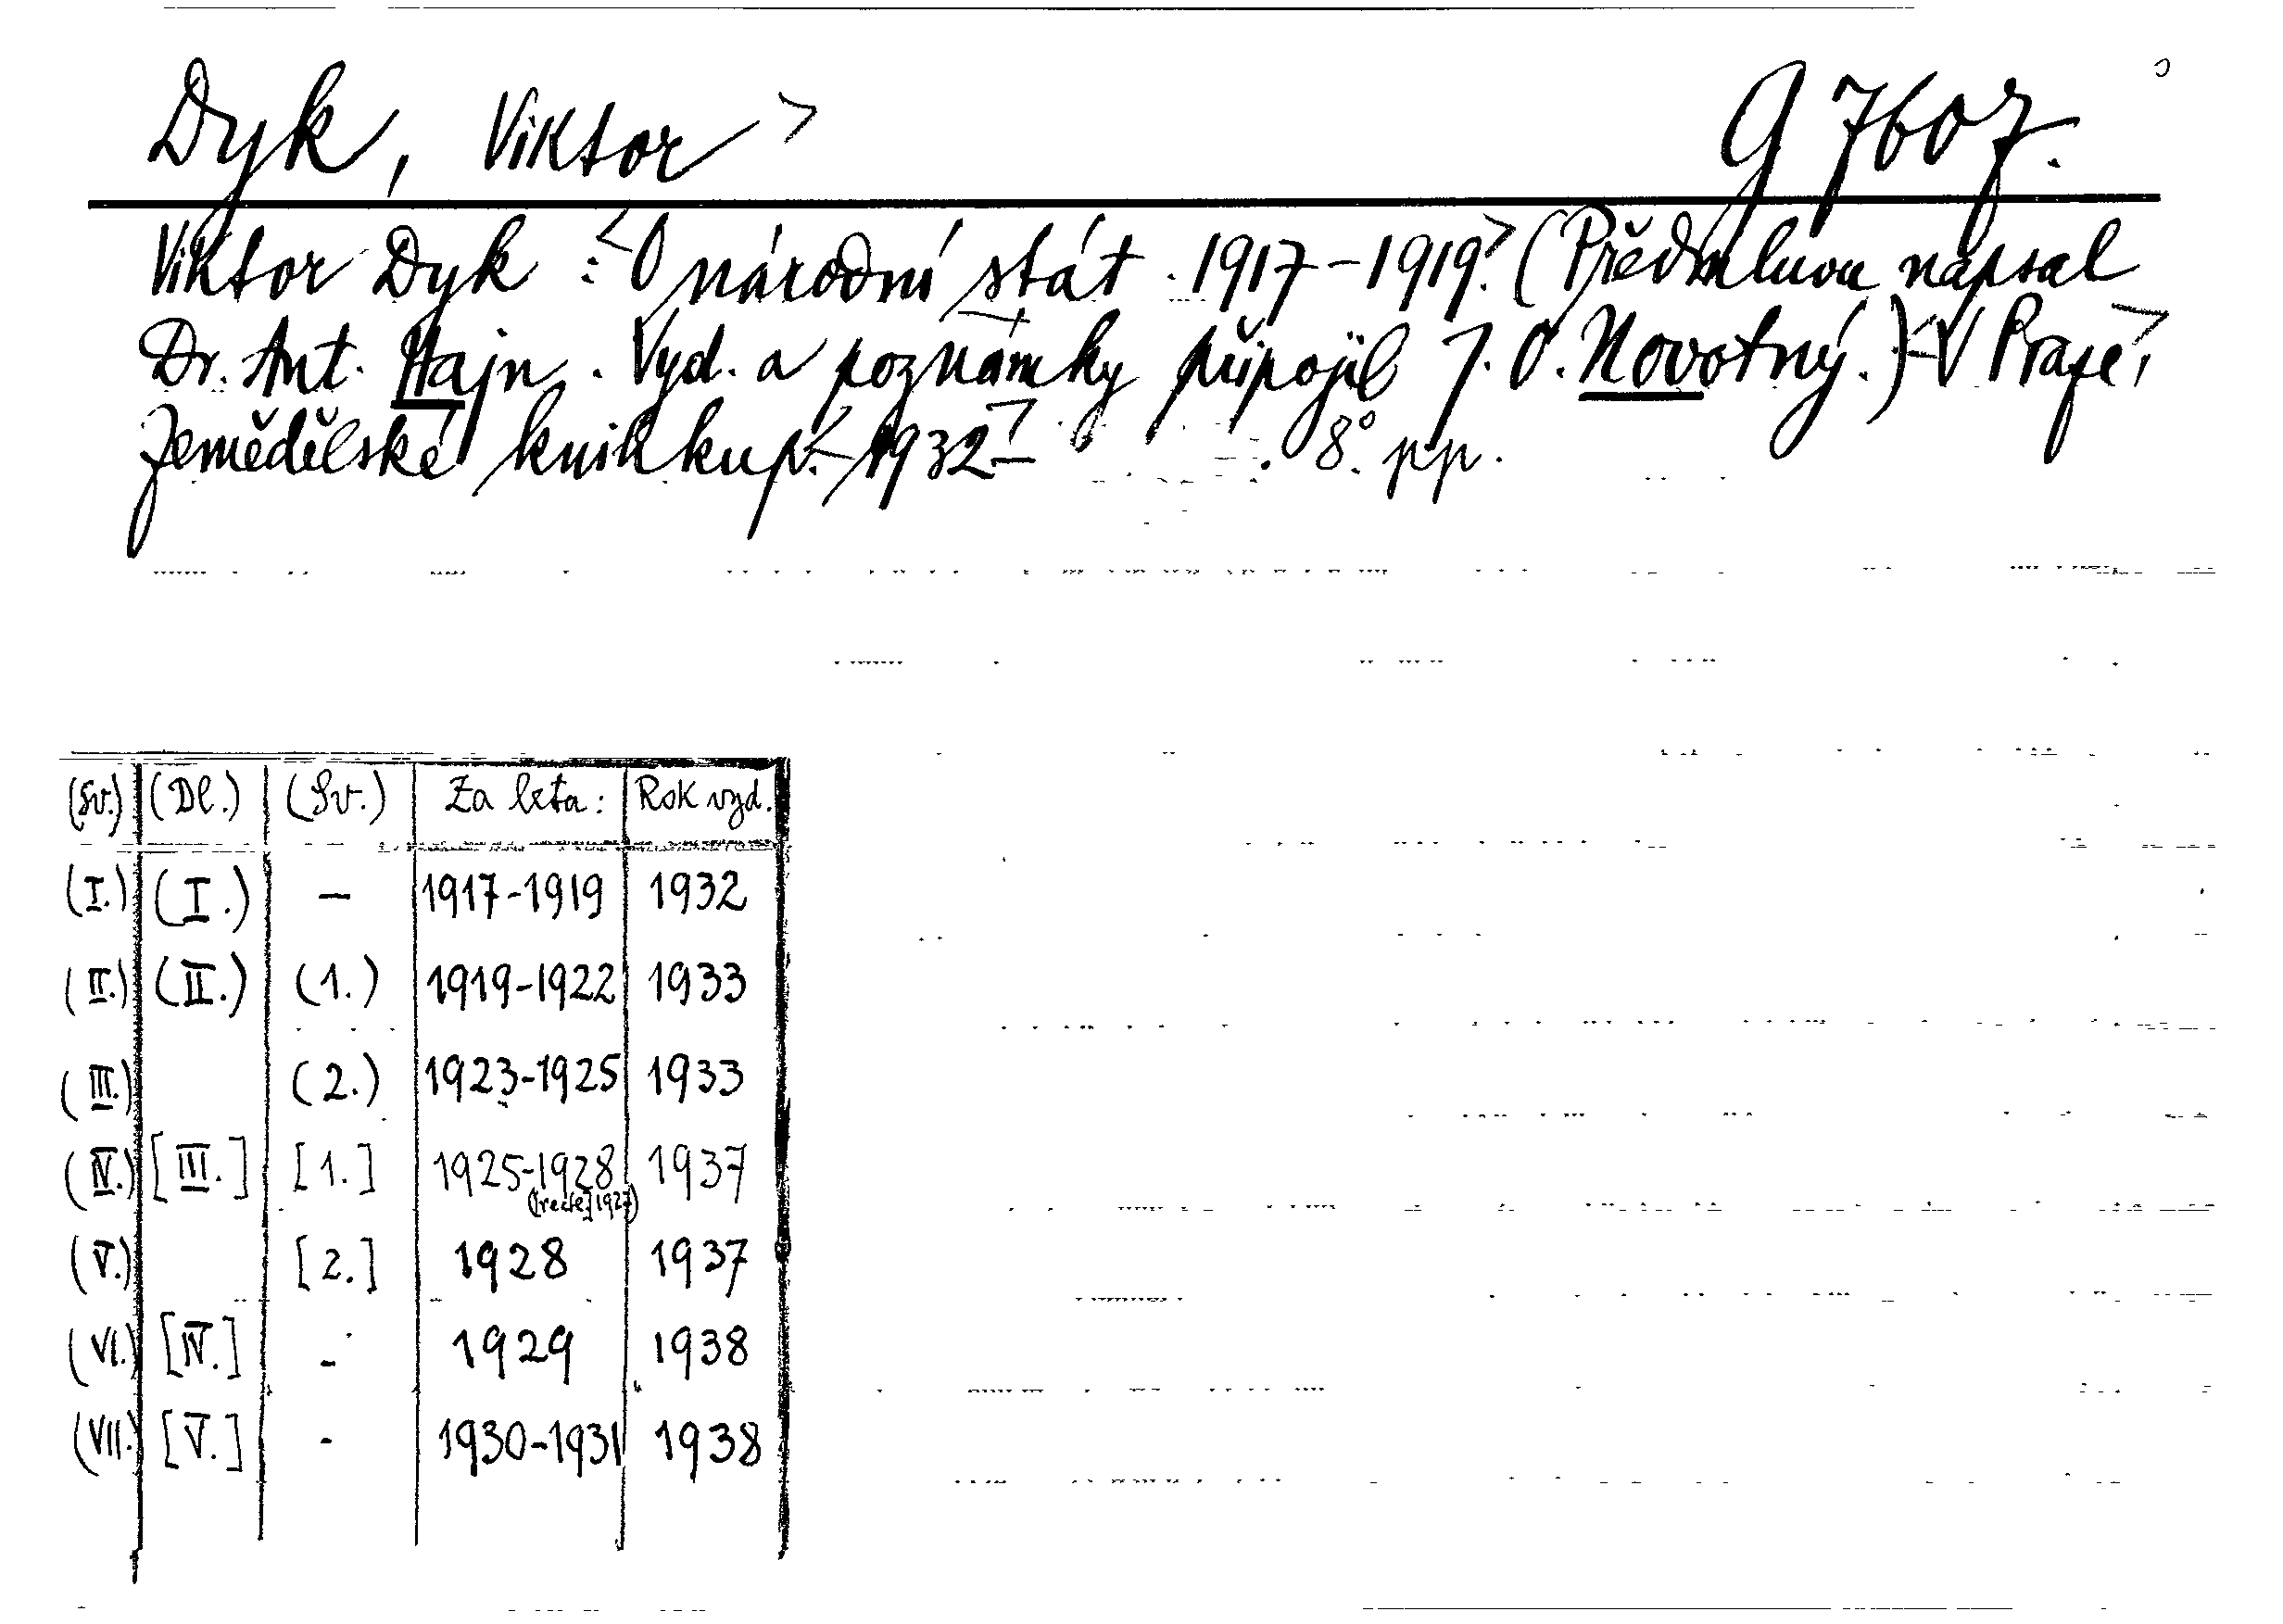 Dyk, Viktor >
G 7607.
Viktor Dyk : <O národní stát 1917-1919.> (Předmluvu napsal
Dr. Ant. Hajn. Vyd. a poznámky připojil J. O. Novotný.) <V Praze,>
Zemědělské knihkup. <1932> . 8°. pp.
(Sv.) (Dl.) (Sv.) Za leta: Rok vyd.
(I.) (I.) - 1917-1919 1932
(II.) (II.) (1.) 1919-1922 1933
(III.) (2.) 1923-1925 1933
(IV.) [III.] [1.] 1925-1928 1937
(recte 1927)
(V.) [2.] 1928 1937
(VI.) [IV.] - 1929 1938
(VII.) [V.] - 1930-1931 1938